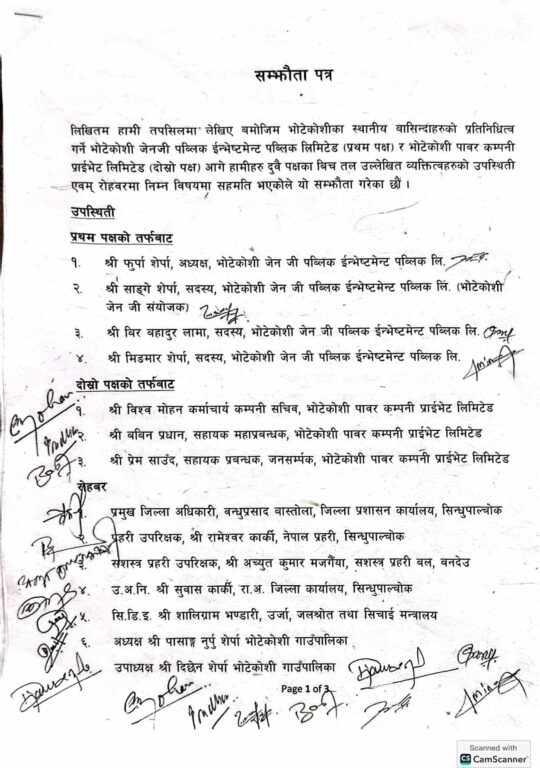 सम्झौता पत्र
लिखितम हामी तपसिलमा लेखिए बमोजिम भोटेकोशीका स्थानीय वासिन्दाहरुको प्रतिनिधित्व
गर्ने भोटेकोशी जेनजी पब्लिक ईन्भेष्टमेन्ट पब्लिक लिमिटेड (प्रथम पक्ष) र भोटेकोशी पावर कम्पनी
प्राईभेट लिमिटेड (दोस्रो पक्ष) आगे हामीहरु दुवै पक्षका बिच तल उल्लेखित व्यक्तित्वहरुको उपस्थिती
एवम् रोहवरमा निम्न विषयमा सहमति भएकोले यो सम्झौता गरेका छौं ।
उपस्थिती
प्रथम पक्षको तर्फबाट
१. श्री फुर्पा शेर्पा, अध्यक्ष, भोटेकोशी जेन जी पब्लिक ईन्भेष्टमेन्ट पब्लिक लि.
२. श्री साङ्गे शेर्पा, सदस्य, भोटेकोशी जेन जी पब्लिक ईन्भेष्टमेन्ट पब्लिक लि. (भोटेकोशी
जेन जी संयोजक)
३. श्री विर बहादुर लामा, सदस्य, भोटेकोशी जेन जी पब्लिक ईन्भेष्टमेन्ट पब्लिक लि.
४. श्री मिडमार शेर्पा, सदस्य, भोटेकोशी जेन जी पब्लिक ईन्भेष्टमेन्ट पब्लिक लि.
दोस्रो पक्षको तर्फबाट
१. श्री विश्व मोहन कर्माचार्य कम्पनी सचिव, भोटेकोशी पावर कम्पनी प्राईभेट लिमिटेड
२. श्री बबिन प्रधान, सहायक महाप्रबन्धक, भोटेकोशी पावर कम्पनी प्राईभेट लिमिटेड
३. श्री प्रेम साउंद, सहायक प्रबन्धक, जनसम्पर्क, भोटेकोशी पावर कम्पनी प्राईभेट लिमिटेड
रोहबर
प्रमुख जिल्ला अधिकारी, वन्धुप्रसाद वास्तोला, जिल्ला प्रशासन कार्यालय, सिन्धुपाल्चोक
प्रहरी उपरिक्षक, श्री रामेश्वर कार्की, नेपाल प्रहरी, सिन्धुपाल्चोक
सशस्त्र प्रहरी उपरिक्षक, श्री अच्युत कुमार मजगैंया, सशस्त्र प्रहरी वल, वनदेउ
४. उ.अ.नि. श्री सुवास कार्की, रा.अ. जिल्ला कार्यालय, सिन्धुपाल्चोक
५. सि.डि.इ. श्री शालिग्राम भण्डारी, उर्जा, जलश्रोत तथा सिचाई मन्त्रालय
६. अध्यक्ष श्री पासाङ्ग नुर्पु शेर्पा भोटेकोशी गाउँपालिका
उपाध्यक्ष श्री दिछेन शेर्पा भोटेकोशी गाउँपालिका
Page 1 of 3
Scanned with
CS CamScanner